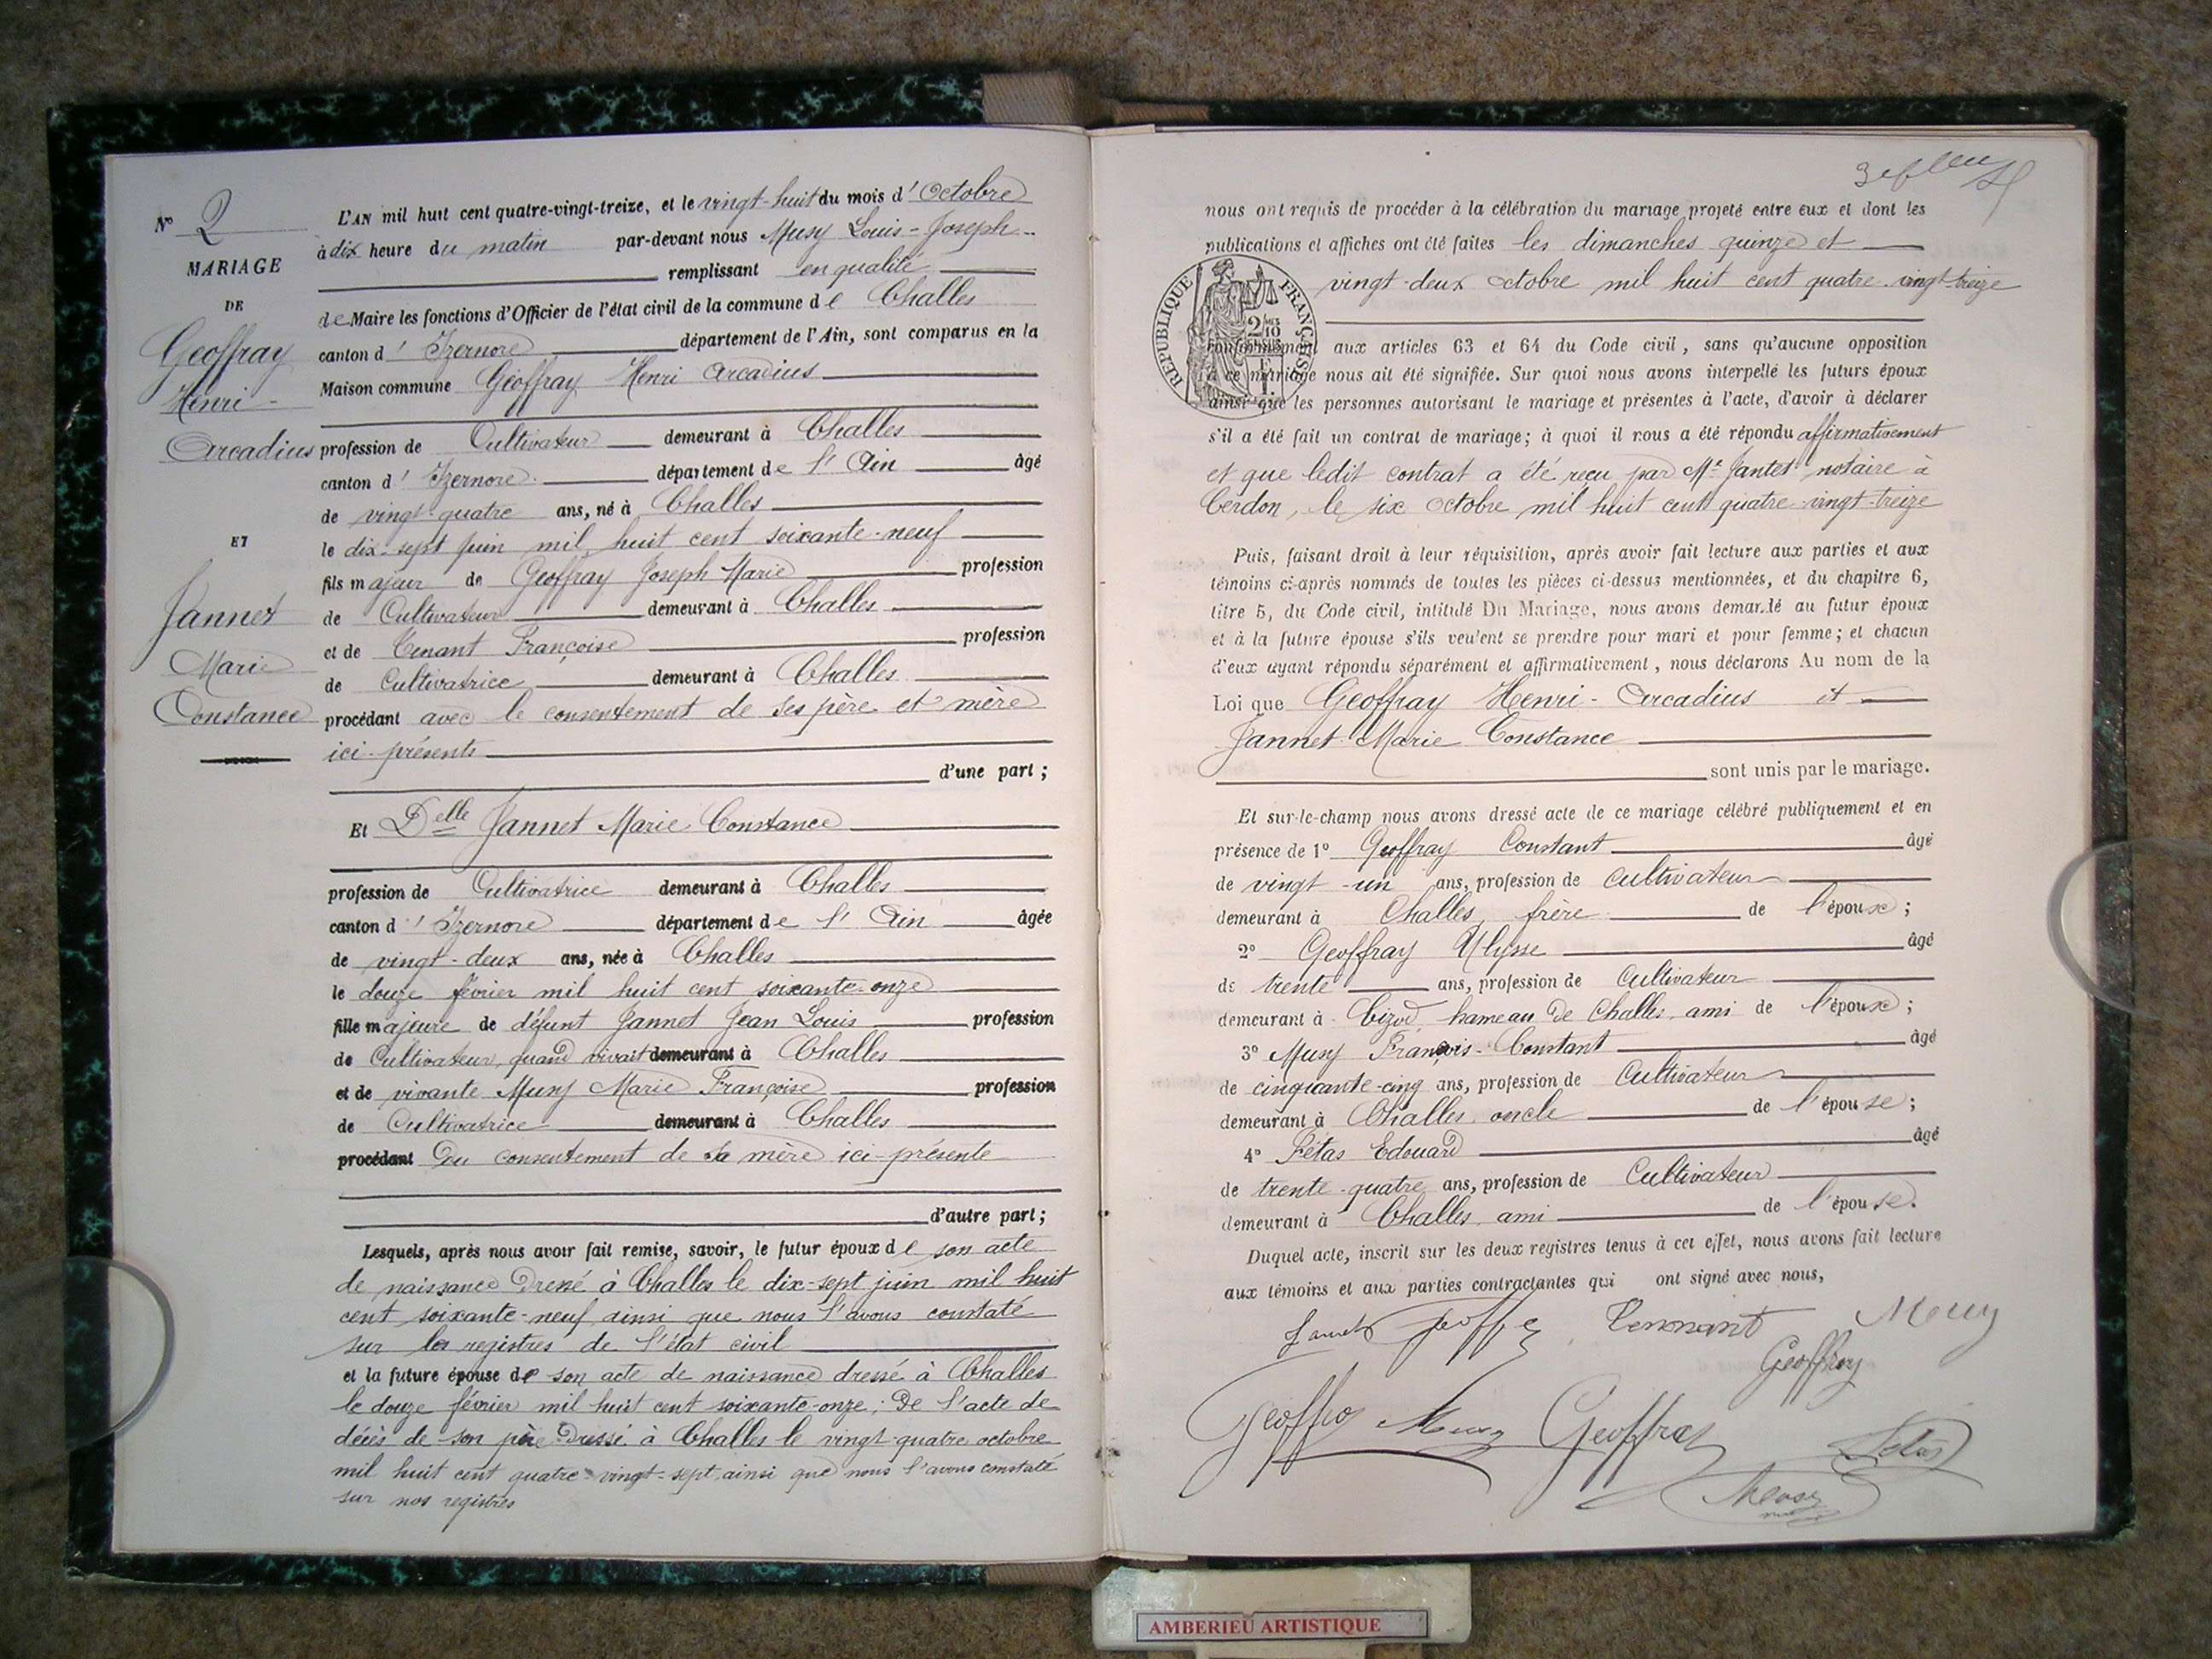 N° 2
MARIAGE
DE
Geoffray
Henri-
Arcadius
ET
Jannet
Marie
Constance
L'AN mil huit cent quatre-vingt-treize, et le vingt-huit du mois d'Octobre
à dix heure du matin par-devant nous Musy Louis-Joseph
remplissant en qualité
de Maire les fonctions d'Officier de l'état civil de la commune de Challes
canton d'Izernore département de l'Ain, sont comparus en la
Maison commune Geoffray Henri Arcadius
profession de Cultivateur demeurant à Challes
canton d'Izernore département de l'Ain âgé
de vingt-quatre ans, né à Challes
le dix-sept juin mil huit cent soixante-neuf
fils majeur de Geoffray Joseph Marie profession
de Cultivateur demeurant à Challes
et de Tenant Françoise profession
de Cultivatrice demeurant à Challes
procédant avec le consentement de ses père et mère
ici-présents
d'une part ;
Et Delle Jannet Marie Constance
profession de Cultivatrice demeurant à Challes
canton d'Izernore département de l'Ain âgée
de vingt-deux ans, née à Challes
le douze février mil huit cent soixante-onze
fille majeure de défunt Jannet Jean Louis profession
de Cultivateur, quand vivait demeurant à Challes
et de vivante Musy Marie Françoise profession
de Cultivatrice demeurant à Challes
procédant du consentement de sa mère ici-présente
d'autre part ;
Lesquels, après nous avoir fait remise, savoir, le futur époux de son acte
de naissance dressé à Challes le dix-sept juin mil huit
cent soixante-neuf ainsi que nous l'avons constaté
sur les registres de l'état civil
et la future épouse de son acte de naissance dressé à Challes
le douze février mil huit cent soixante-onze ; de l'acte de
décès de son père dressé à Challes le vingt-quatre octobre
mil huit cent quatre-vingt-sept, ainsi que nous l'avons constaté
sur nos registres
nous ont requis de procéder à la célébration du mariage projeté entre eux et dont les
publications et affiches ont été faites les dimanches quinze et
vingt-deux octobre mil huit cent quatre-vingt-treize
RÉPUBLIQUE FRANÇAISE
conformément aux articles 63 et 64 du Code civil, sans qu'aucune opposition
à ce mariage nous ait été signifiée. Sur quoi nous avons interpellé les futurs époux
ainsi que les personnes autorisant le mariage et présentes à l'acte, d'avoir à déclarer
s'il a été fait un contrat de mariage ; à quoi il nous a été répondu affirmativement
et que ledit contrat a été reçu par Me Jantet notaire à
Cerdon, le six octobre mil huit cent quatre-vingt-treize
Puis, faisant droit à leur réquisition, après avoir fait lecture aux parties et aux
témoins ci-après nommés de toutes les pièces ci-dessus mentionnées, et du chapitre 6,
titre 5, du Code civil, intitulé Du Mariage, nous avons demandé au futur époux
et à la future épouse s'ils veulent se prendre pour mari et pour femme ; et chacun
d'eux ayant répondu séparément et affirmativement, nous déclarons Au nom de la
Loi que Geoffray Henri-Arcadius et
Jannet Marie Constance
sont unis par le mariage.
Et sur-le-champ nous avons dressé acte de ce mariage célébré publiquement et en
présence de 1° Geoffray Constant âgé
de vingt-un ans, profession de cultivateur
demeurant à Challes, frère de l'époux ;
2° Geoffray Ulysse âgé
de trente ans, profession de cultivateur
demeurant à Cizod, hameau de Challes, ami de l'époux ;
3° Musy François-Constant âgé
de cinquante-cinq ans, profession de Cultivateur
demeurant à Challes, oncle de l'épouse ;
4° Fétas Edouard âgé
de trente-quatre ans, profession de Cultivateur
demeurant à Challes, ami de l'épouse.
Duquel acte, inscrit sur les deux registres tenus à cet effet, nous avons fait lecture
aux témoins et aux parties contractantes qui ont signé avec nous,
Tennant
Geoffray
Geoffray
AMBERIEU ARTISTIQUE